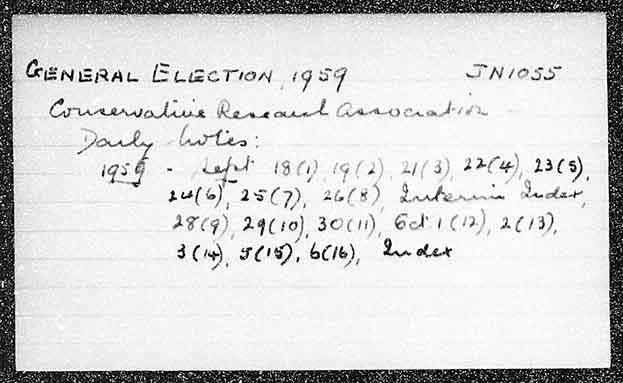 GENERAL ELECTION, 1959 JN1055
Conservative Research Association
Daily Notes:
1959 - Sept 18(1), 19(2), 21(3), 22(4), 23(5),
24(6), 25(7), 26(8), Interim Index,
28(9), 29(10), 30(11), Oct 1(12), 2(13),
3(14), 5(15), 6(16), Index